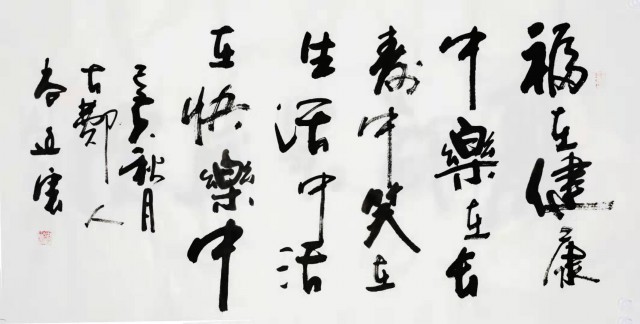 福在健康
中樂在长
寿中笑在
生活中活
在快樂中
己亥秋月
古鄭人
春